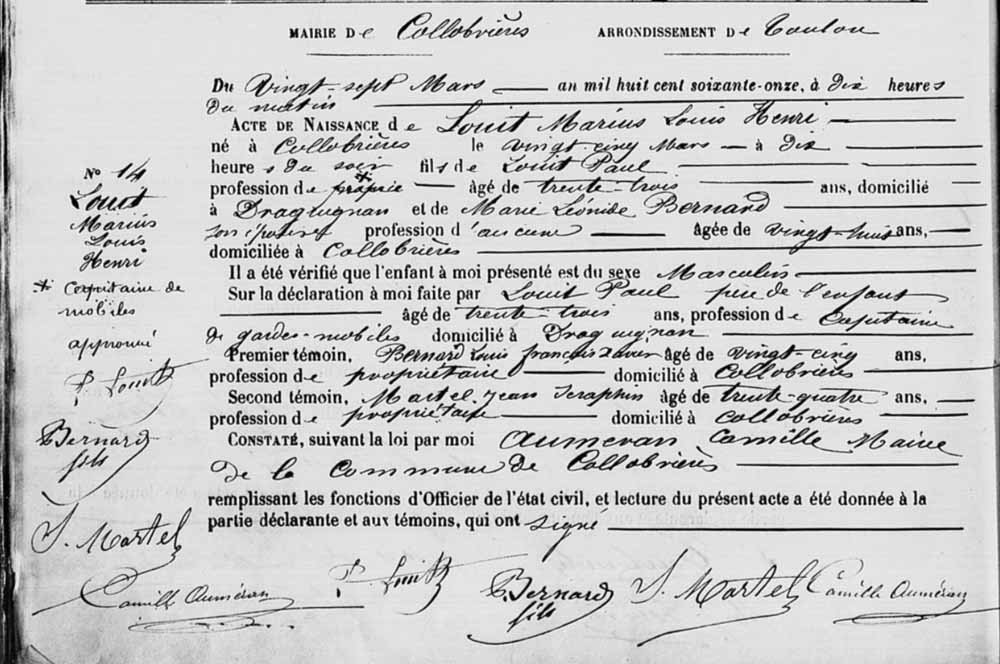 MAIRIE De Collobrières ARRONDISSEMENT De Toulon
Du Vingt-sept Mars an mil huit cent soixante-onze, à dix heures
du matin
ACTE DE NAISSANCE de Louit Marius Louis Henri
né à Collobrières le vingt-cinq Mars à dix
heures du soir fils de Louit Paul
profession de proprie * âgé de trente-trois ans, domicilié
à Draguignan et de Marie Léonide Bernard
son épouse profession d'aucune âgée de vingt-huit ans,
domiciliée à Collobrières
Il a été vérifié que l'enfant à moi présenté est du sexe Masculin
Sur la déclaration à moi faite par Louit Paul père de l'enfant
âgé de trente-trois ans, profession de Capitaine
de gardes-mobiles domicilié à Draguignan
Premier témoin, Bernard Louis françois Xavier âgé de vingt-cinq ans,
profession de propriétaire domicilié à Collobrières
Second témoin, Martel Jean Seraphin âgé de trente-quatre ans,
profession de propriétaire domicilié à Collobrières
CONSTATÉ, suivant la loi par moi Aumeran Camille Maire
de la Commune de Collobrières
remplissant les fonctions d'Officier de l'état civil, et lecture du présent acte a été donnée à la
partie déclarante et aux témoins, qui ont signé
No 14
Louit
Marius
Louis
Henri
* Capitaine de
mobiles
approuvé
P. Louit
Bernard
fils
J. Martel
Camille Auméran
P. Louit
Bernard
fils
J. Martel
Camille Auméran